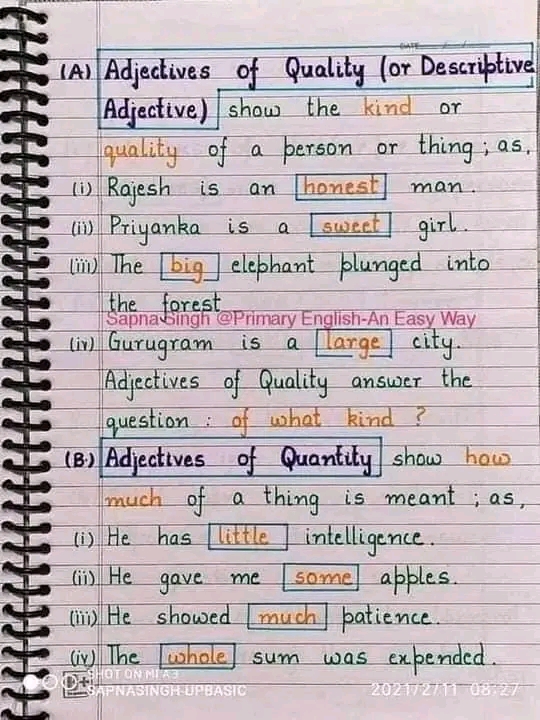 DATE
(A) Adjectives of Quality (or Descriptive
Adjective) show the kind or
quality of a person or thing ; as,
(i) Rajesh is an honest man.
(ii) Priyanka is a sweet girl.
(iii) The big elephant plunged into
the forest
Sapna Singh @Primary English-An Easy Way
(iv) Gurugram is a large city.
Adjectives of Quality answer the
question : of what kind ?
(B) Adjectives of Quantity show how
much of a thing is meant ; as,
(i) He has little intelligence.
(ii) He gave me some apples.
(iii) He showed much patience.
(iv) The whole sum was expended.
SHOT ON MI A3
SAPNASINGH-UPBASIC
2021/2/11 08:27